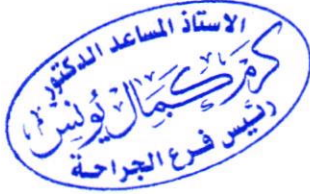 الاستاذ المساعد الدكتور
كرم كمال يونس
رئيس فرع الجراحة